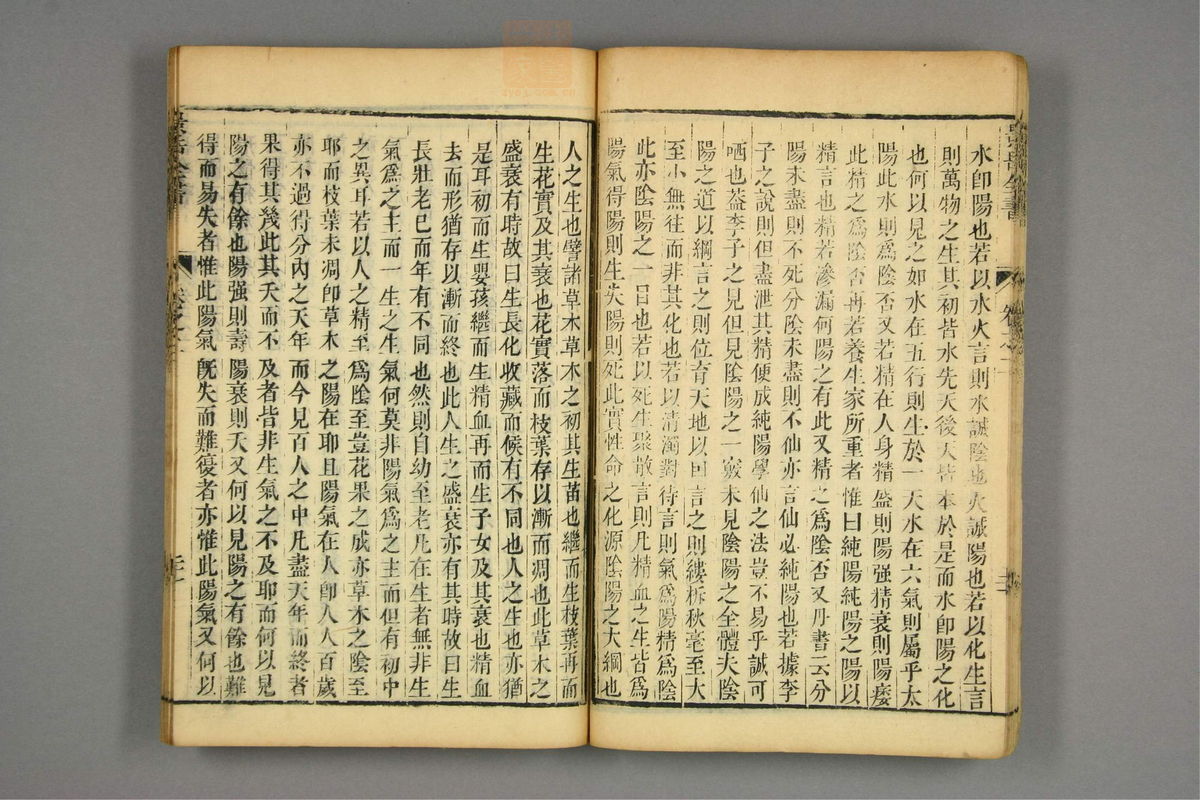 水卽陽也若以水火言則水誠陰也火誠陽也若以化生言
則萬物之生其初皆水先天後天皆本於是而水卽陽之化
也何以見之如水在五行則生於一天水在六氣則屬乎太
陽此水則爲陰否又若精在人身精盛則陽强精衰則陽痿
此精之爲陰否再若養生家所重者惟曰純陽純陽之陽以
精言也精若滲漏何陽之有此又精之爲陰否又丹書云分
陽未盡則不死分陰未盡則不仙亦言仙必純陽也若據李
子之說則但盡泄其精便成純陽學仙之法豈不易乎誠可
哂也葢李子之見但見陰陽之一竅未見陰陽之全體夫陰
陽之道以綱言之則位育天地以目言之則縷析秋毫至大
至小無往而非其化也若以清濁對待言則氣爲陽精爲陰
此亦陰陽之一目也若以死生聚散言則凡精血之生皆爲
陽氣得陽則生失陽則死此實性命之化源陰陽之大綱也
人之生也譬諸草木草木之初其生苗也繼而生枝葉再而
生花實及其衰也花實落而枝葉存以漸而凋也此草木之
盛衰有時故曰生長化收藏而候有不同也人之生也亦猶
是耳初而生嬰孩繼而生精血再而生子女及其衰也精血
去而形猶存以漸而終也此人生之盛衰亦有其時故曰生
長壯老已而年有不同也然則自幼至老凡在生者無非生
氣爲之主而一生之生氣何莫非陽氣爲之主而但有初中
之異耳若以人之精至爲陰至豈花果之成亦草木之陰至
耶而枝葉未凋卽草木之陽在耶且陽氣在人卽人人百歲
亦不過得分內之天年而今見百人之中凡盡天年而終者
果得其幾此其夭而不及者皆非生氣之不及耶而何以見
陽之有餘也陽强則壽陽衰則夭又何以見陽之有餘也難
得而易失者惟此陽氣旣失而難復者亦惟此陽氣又何以
景岳全書